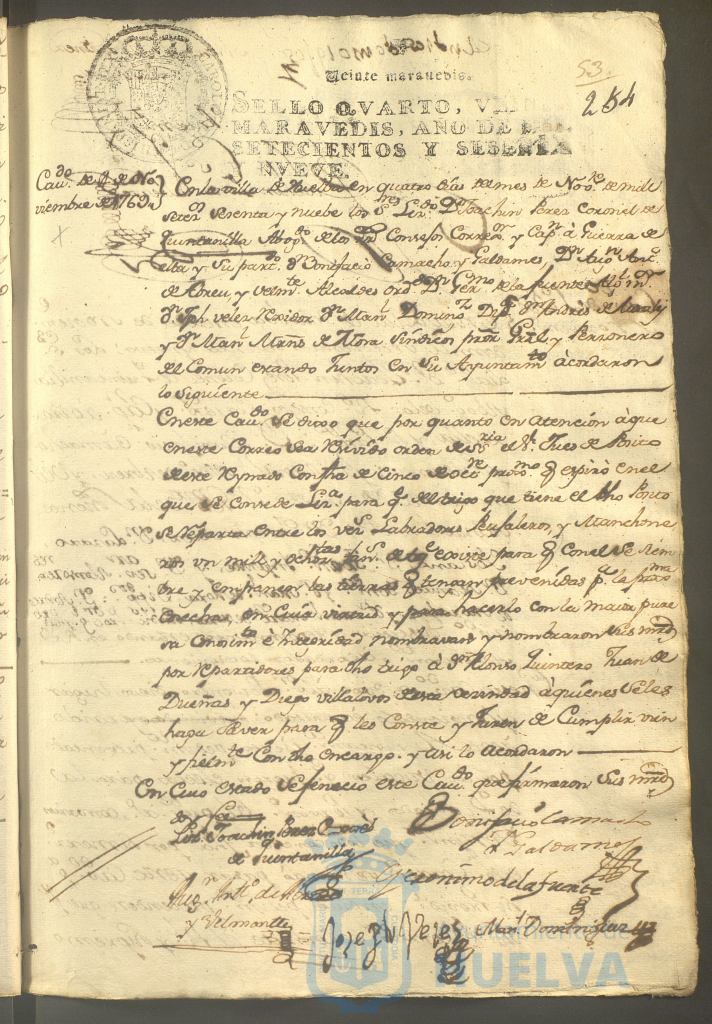 53.
254
Veinte maravedis.
SELLO QVARTO, VEINTE
MARAVEDIS, AÑO DE MIL
SETECIENTOS Y SESENTA
Y NVEVE.
Cavdo. de 4 de No
viembre de 1769
En la villa de Huelva en quatro dias del mes de Nove. de mill
setezs. Sesenta y nuebe los Sres. Lizdo. Dn. Joachin Perez Coronel de
Quintanilla Abogdo. de los Rs. Consejos Corregor. y Capn. à Guerra de
esta y Su partdo. Dn. Bonifacio Camacho y Galdames, Dn. Augn. Antto.
de Abreu y Velmte. Alcaldes Ordos. Dn. Germo. de la fuente
Dn. Jph velez Rexidor Dn. Manl. Domingz. Dipdo. Dn. Andres de
y Dn. Manl. Mrns. de Mora Síndicos procr. Gral. y Personero
del Comun estando Juntos en Su Ayuntamto. àcordaron
lo Siguiente
En este Cavdo. Se dijo que por quanto en atención à que
en este Correo se a Rezivido orden de Sria. el Sr. Juez de Positos
de este Reynado Con fha de Cinco de Octe. proxmo. q espiró en el
que Se Consede Liza. para q. del trigo que tiene el dho Posito
Se Reparta entre los vezs. Labradores Pujaleros, y Manchone
ros un mil y ochozs. fans. de q existe para q con el Se Siem
bre y empanen las tierras q tengan prevenidas pa. la proxma
Cosecha, en Cuia virtud y para hacerlo con la maior pure
sa Conosimto. è Integridad nombravan y nombraron Sus mrds
por Repartidores para dho trigo à Dn. Alonso Quintero Juan de
Dueñas y Diego Villalovos de esta vezindad à quienes Se les
haga Saver para q les Conste y Juren de Cumplir vien
y fielmte. Con dho encargo. y asi lo acordaron
Con Cuio estado Se fenecio este Cavdo. que firmaron Sus mrds
doy fee
Lizdo. Joachin Perez Coronel
de Quintanilla
Bonifacio Camacho
y Galdames
Augn. Antto. de Abreu
y Velmonte
Geronimo de la fuente
Jozeph Velez
Manl. Dominguez
Ayuntamiento de
HUELVA